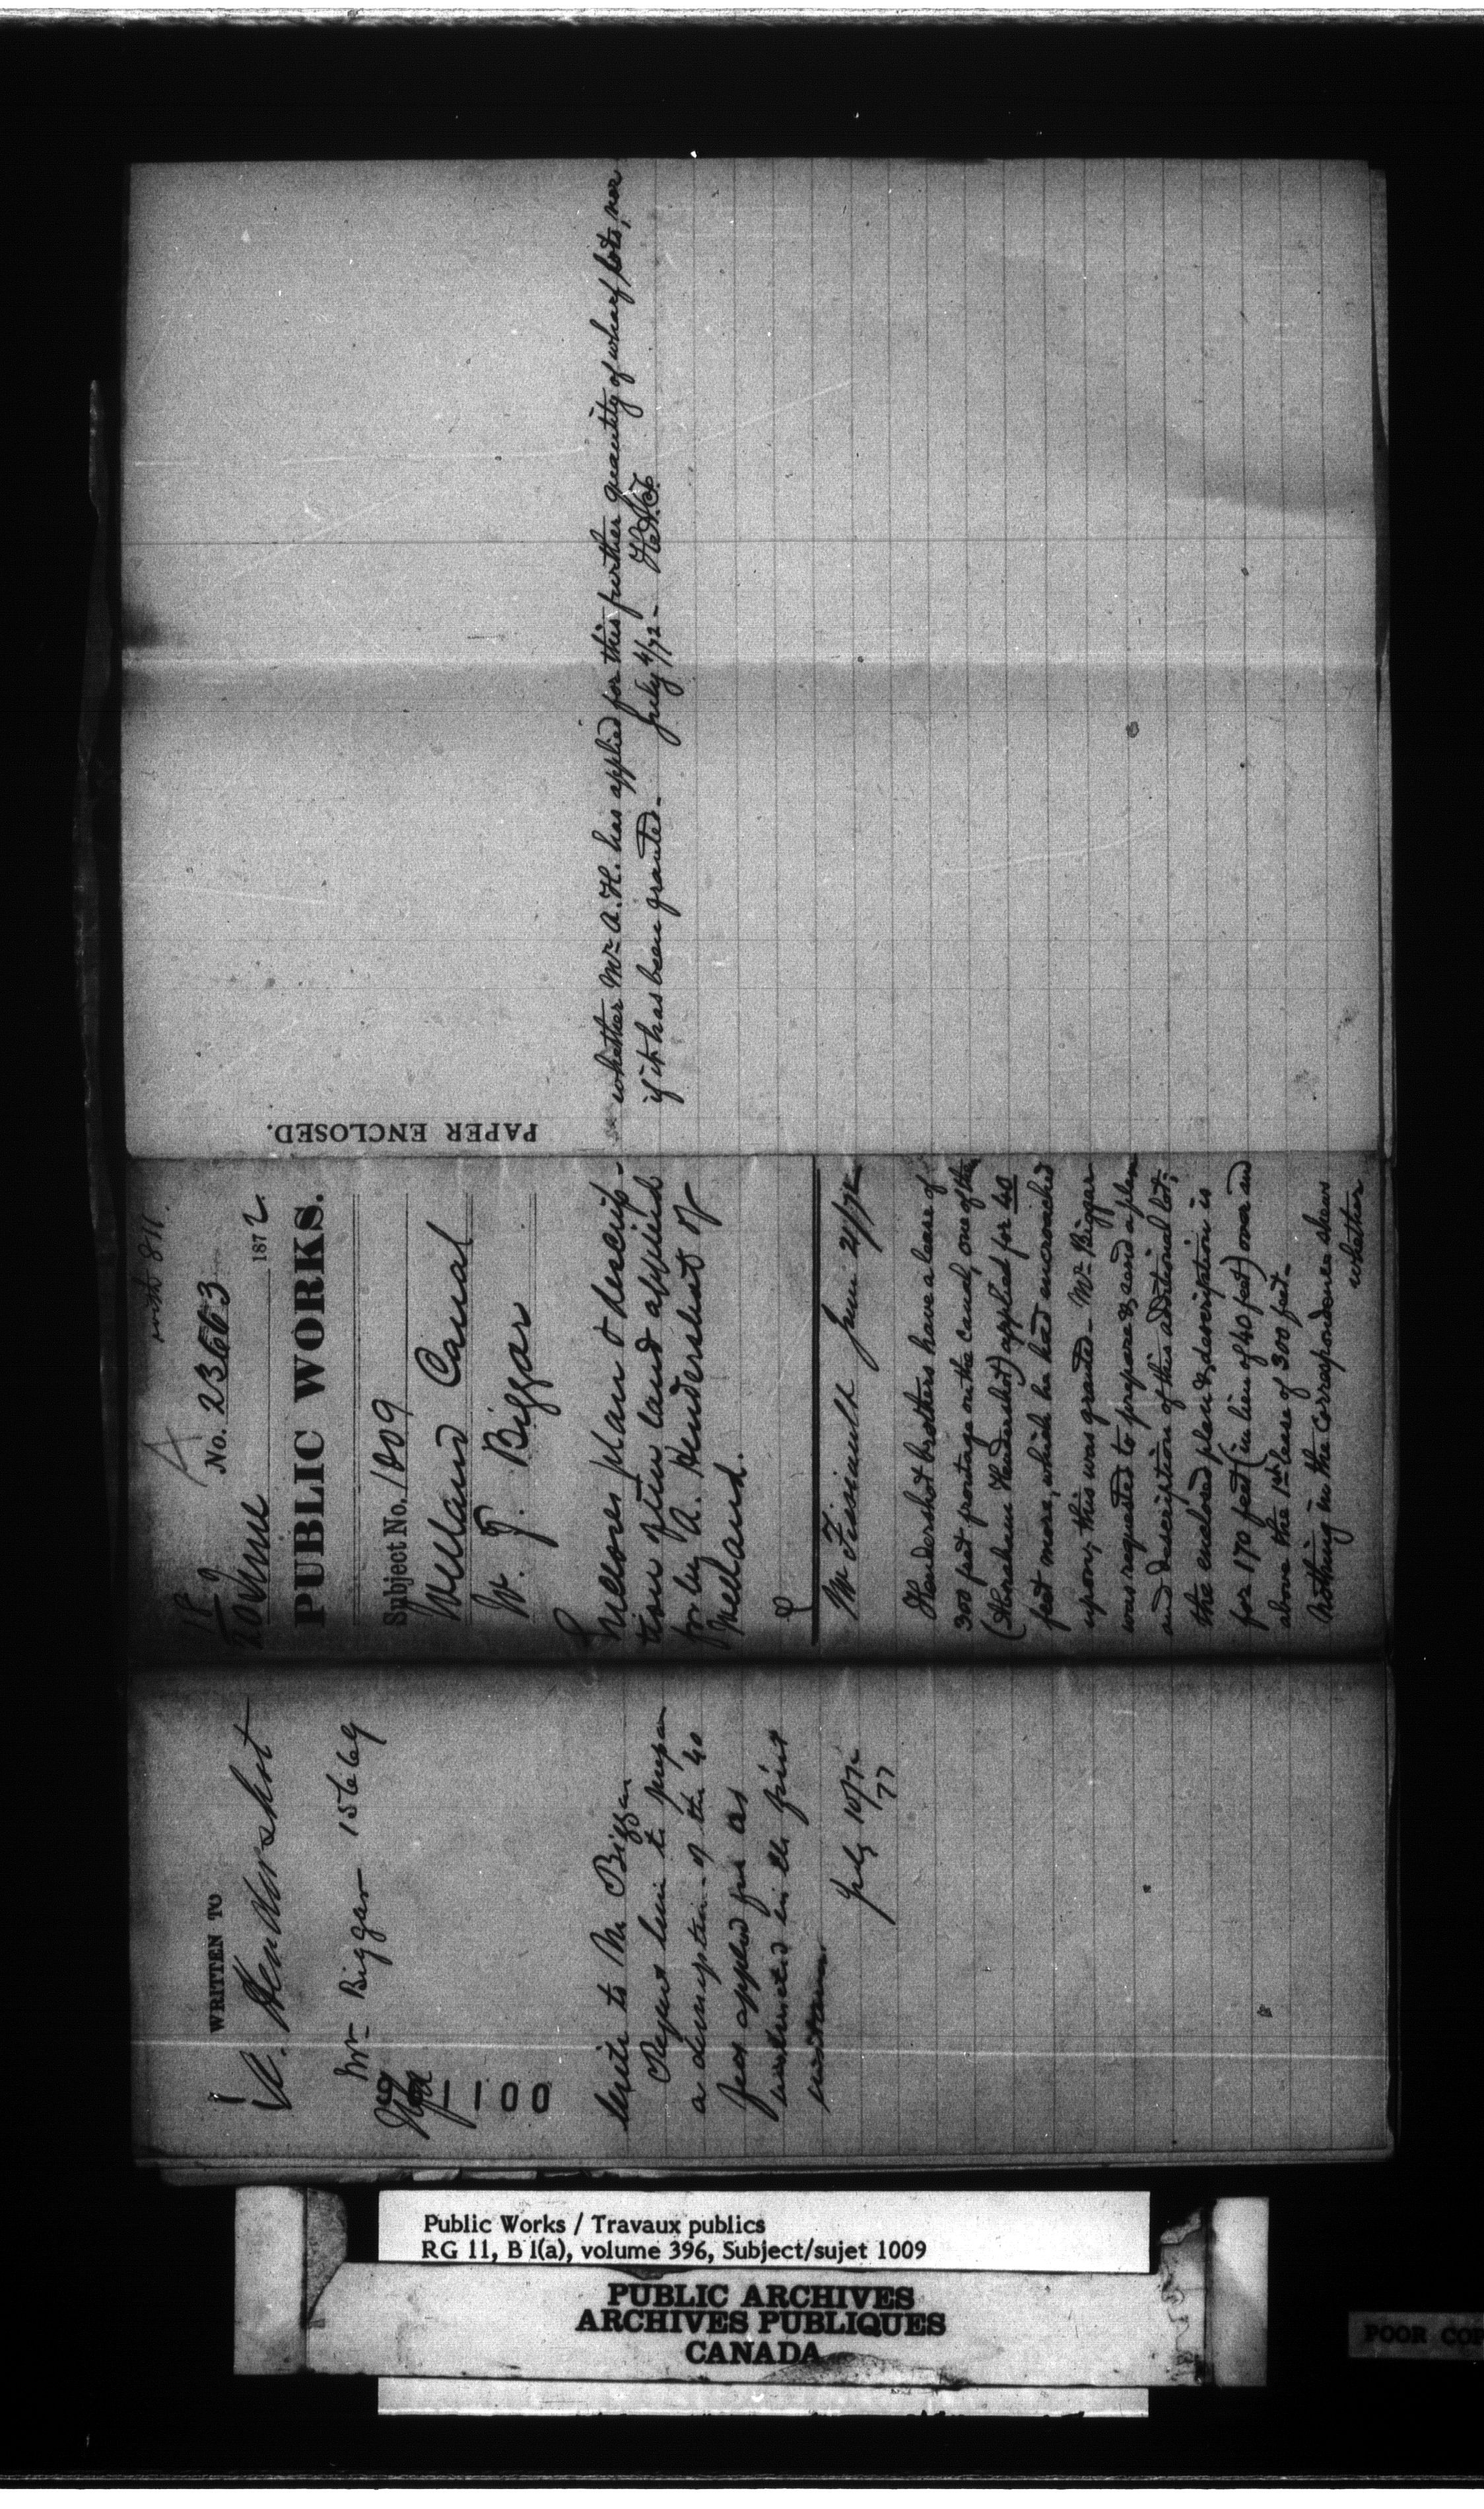 WRITTEN TO
A. Hendershot
Mr Biggar 15669
1100
Write to Mr Biggar
Request him to prepare
a description of the 40
feet applied for as
instructed in the first
instance
July 10/72
77
with 811.
A
No. 23663
18
9
20 June 1872
PUBLIC WORKS.
Subject No. 1009
Welland Canal
W. G. Biggar
Incloses plan & descrip-
tion of the land applied
for by A. Hendershot of
Welland.
Mr Fissiault June 21/72
Hendershot brothers have a lease of
300 feet frontage on the Canal, one of them
(Abraham Hendershot) applied for 40
feet more, which he had encroached
upon; this was granted - Mr Biggar
was requested to prepare & send a plan
and description of this additional lot;
the enclosed plan & description is
for 170 feet (in lieu of 40 feet) over and
above the 1st lease of 300 feet -
Nothing in the Correspondence shews
whether
PAPER ENCLOSED.
whether Mr A. H. has applied for this further quantity of wharf lots, nor
if it has been granted. -
July 4/72 -
Public Works / Travaux publics
RG 11, B 1(a), volume 396, Subject/sujet 1009
PUBLIC ARCHIVES
ARCHIVES PUBLIQUES
CANADA
POOR COP